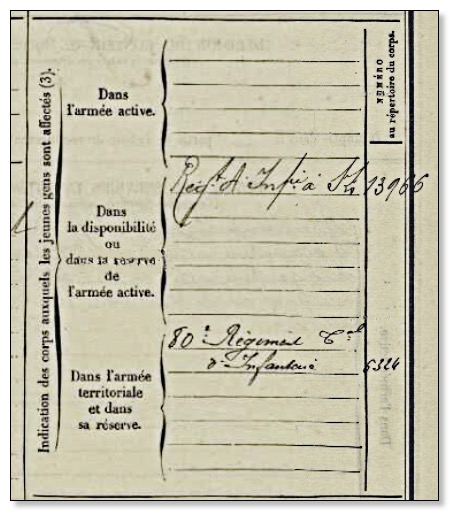 Indication des corps auxquels les jeunes gens sont affectés (3).
NUMÉRO
au répertoire du corps.
Dans
l'armée active.
Régt d'Infie à 13966
Dans
la disponibilité
ou
dans la réserve
de
l'armée active.
80e Régiment Tal
d'Infanterie 5324
Dans l'armée
territoriale
et dans
sa réserve.